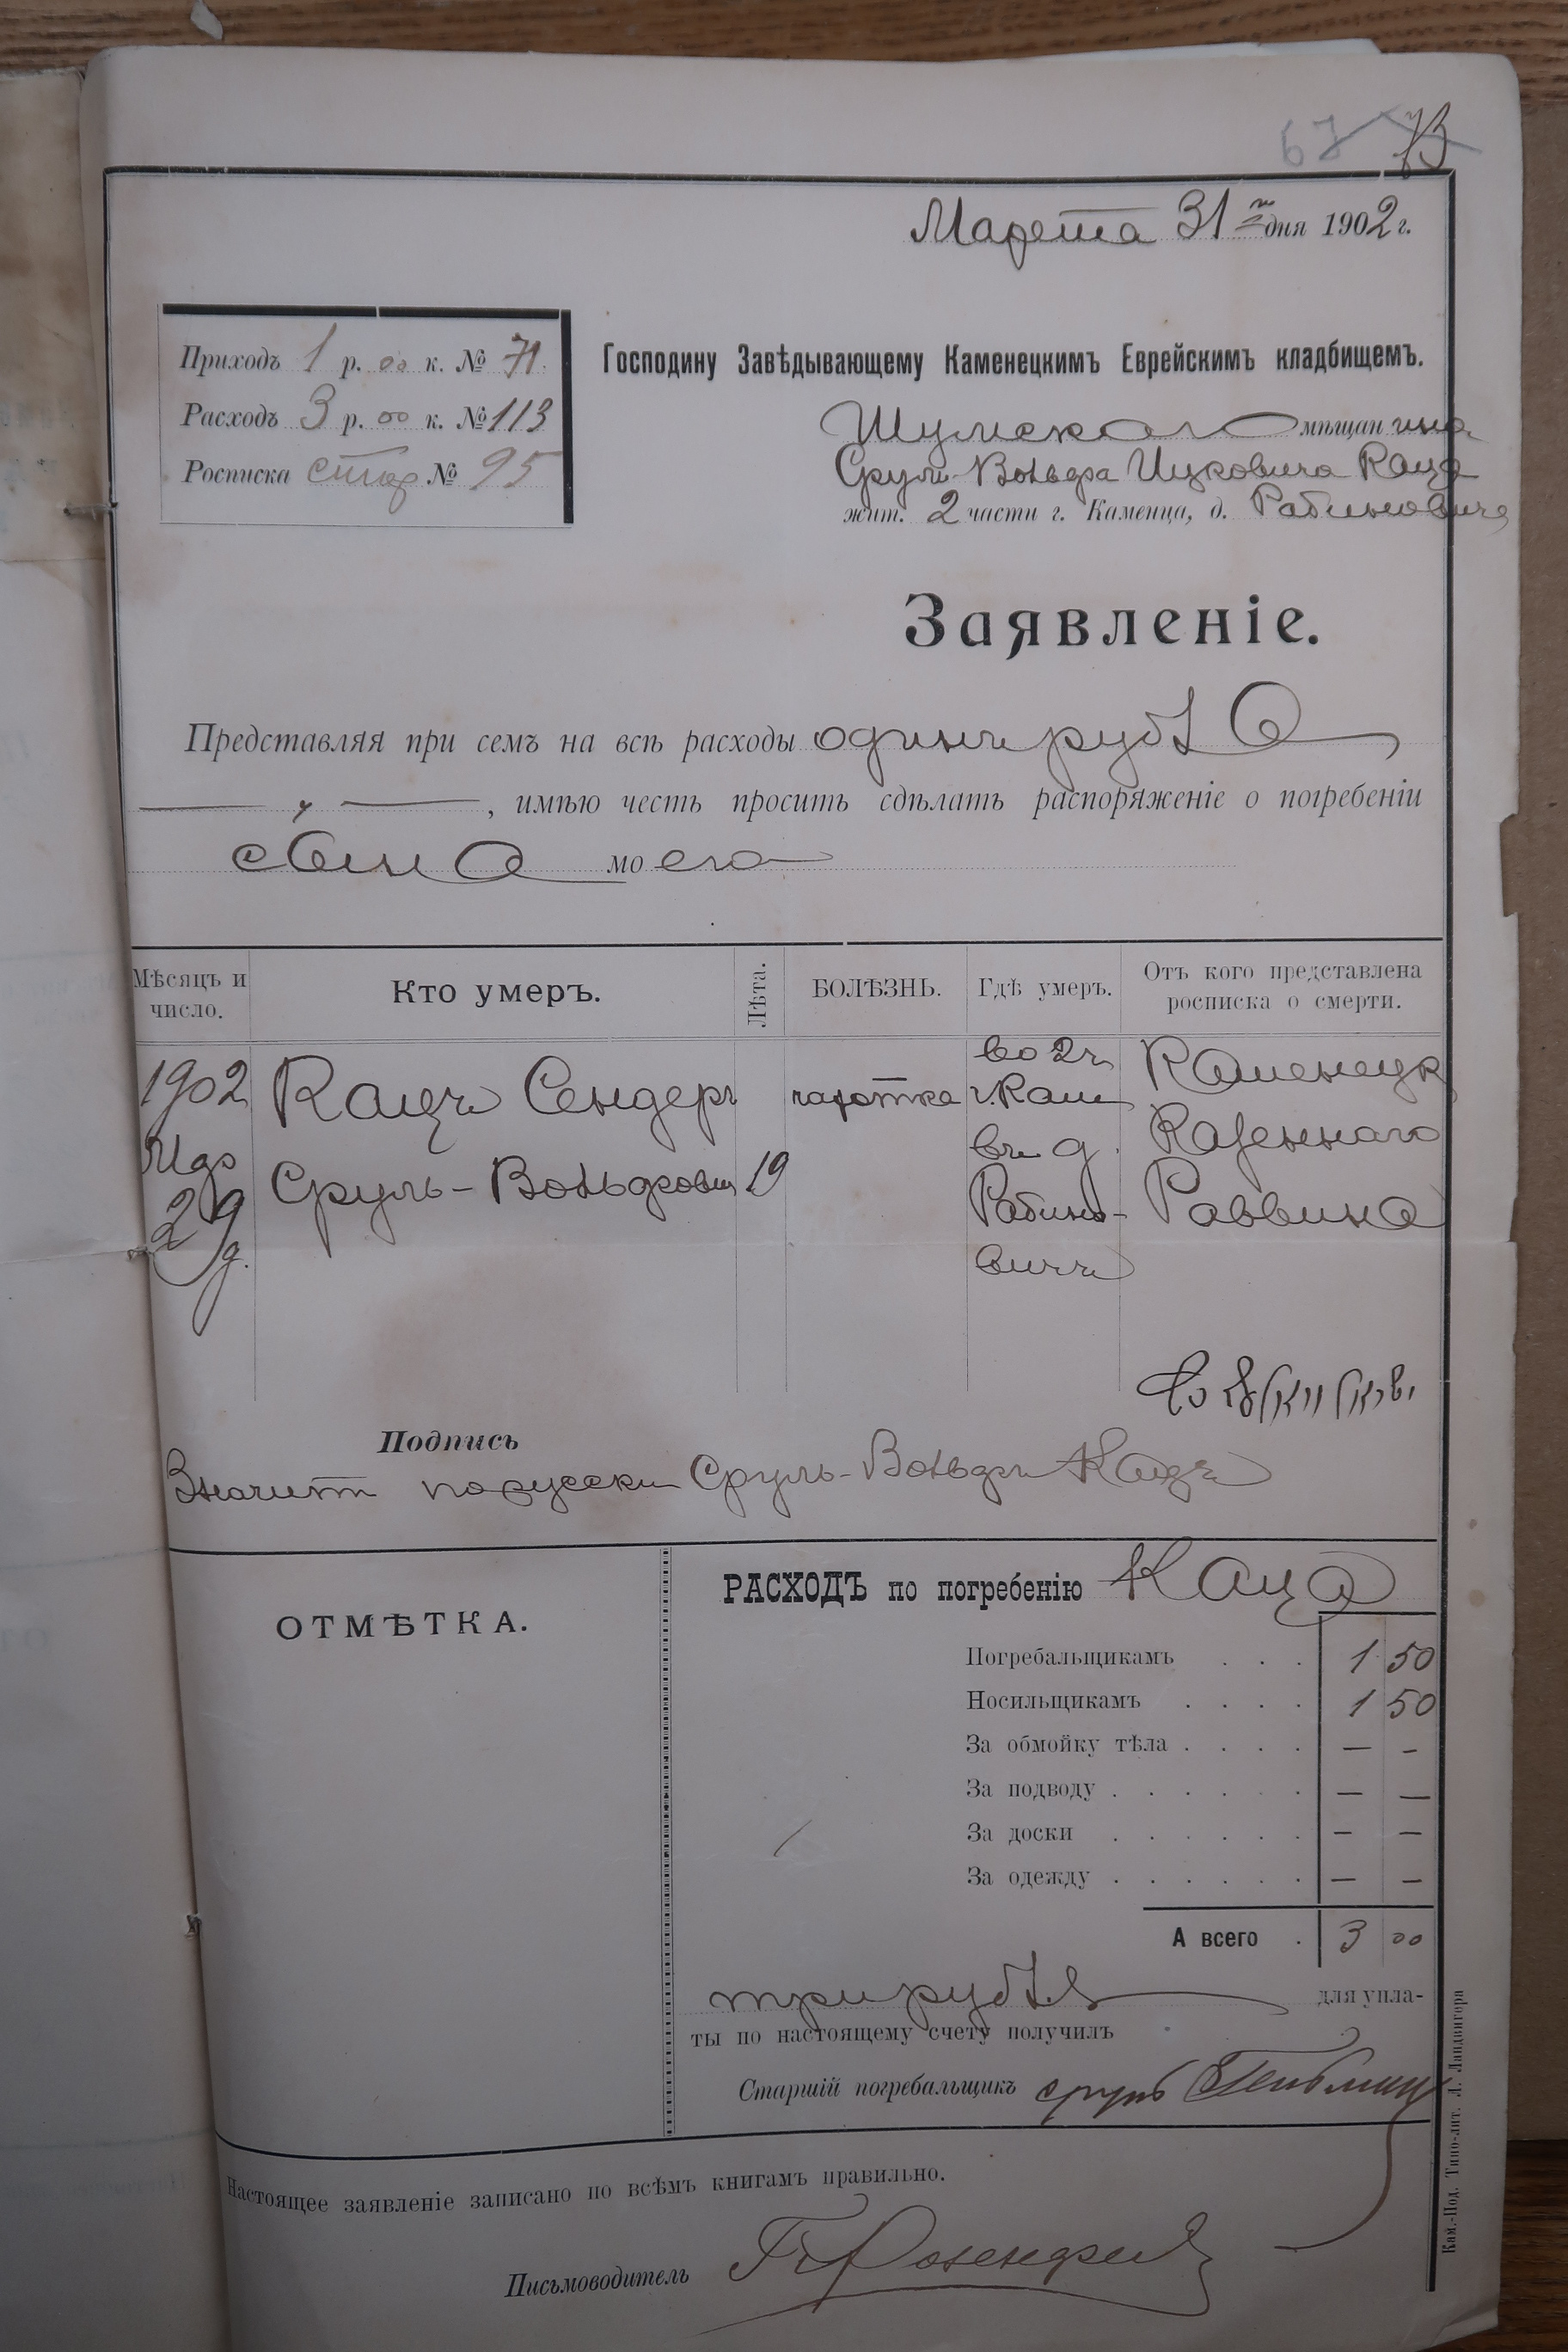 73
Марта 31 го дня 1902 г.
Приходъ 1 р. 00 к. № 71.
Расходъ 3 р. 00 к. № 113
Росписка стар № 95
Господину Завѣдывающему Каменецкимъ Еврейскимъ кладбищемъ.
Шумского мѣщанина
Сруль-Вольфа Ицковича Каца
жит. 2 части г. Каменца, д. Рабиновича
Заявленіе.
Представляя при семъ на всѣ расходы одинъ рубль
, имѣю честь просить сдѣлать распоряженіе о погребеніи
сына моего
Мѣсяцъ и число.
Кто умеръ.
Лѣта.
БОЛѢЗНЬ.
Гдѣ умеръ.
Отъ кого представлена росписка о смерти.
1902
Мар
29 д.
Кацъ Сендеръ
Сруль-Вольфович
19
чахотка
во 2 ч.
г. Кам
въ д.
Рабино-
вичъ
Каменецк
Казеннаго
Раввина
Подпись
Значит по русски Сруль-Вольфъ Кацъ
ОТМѢТКА.
РАСХОДЪ по погребенію Каца
Погребальщикамъ . . . 1 50
Носильщикамъ . . . . 1 50
За обмойку тѣла . . . . — -
За подводу . . . . . . — —
За доски . . . . . . — —
За одежду . . . . . . — —
А всего . 3 00
три рубля для упла-
ты по настоящему счету получилъ
Старшій погребальщикъ сруль
Настоящее заявленіе записано по всѣмъ книгамъ правильно.
Письмоводитель Розенфельд
Кам.-Под. Типо-лит. Л. Ландвигера